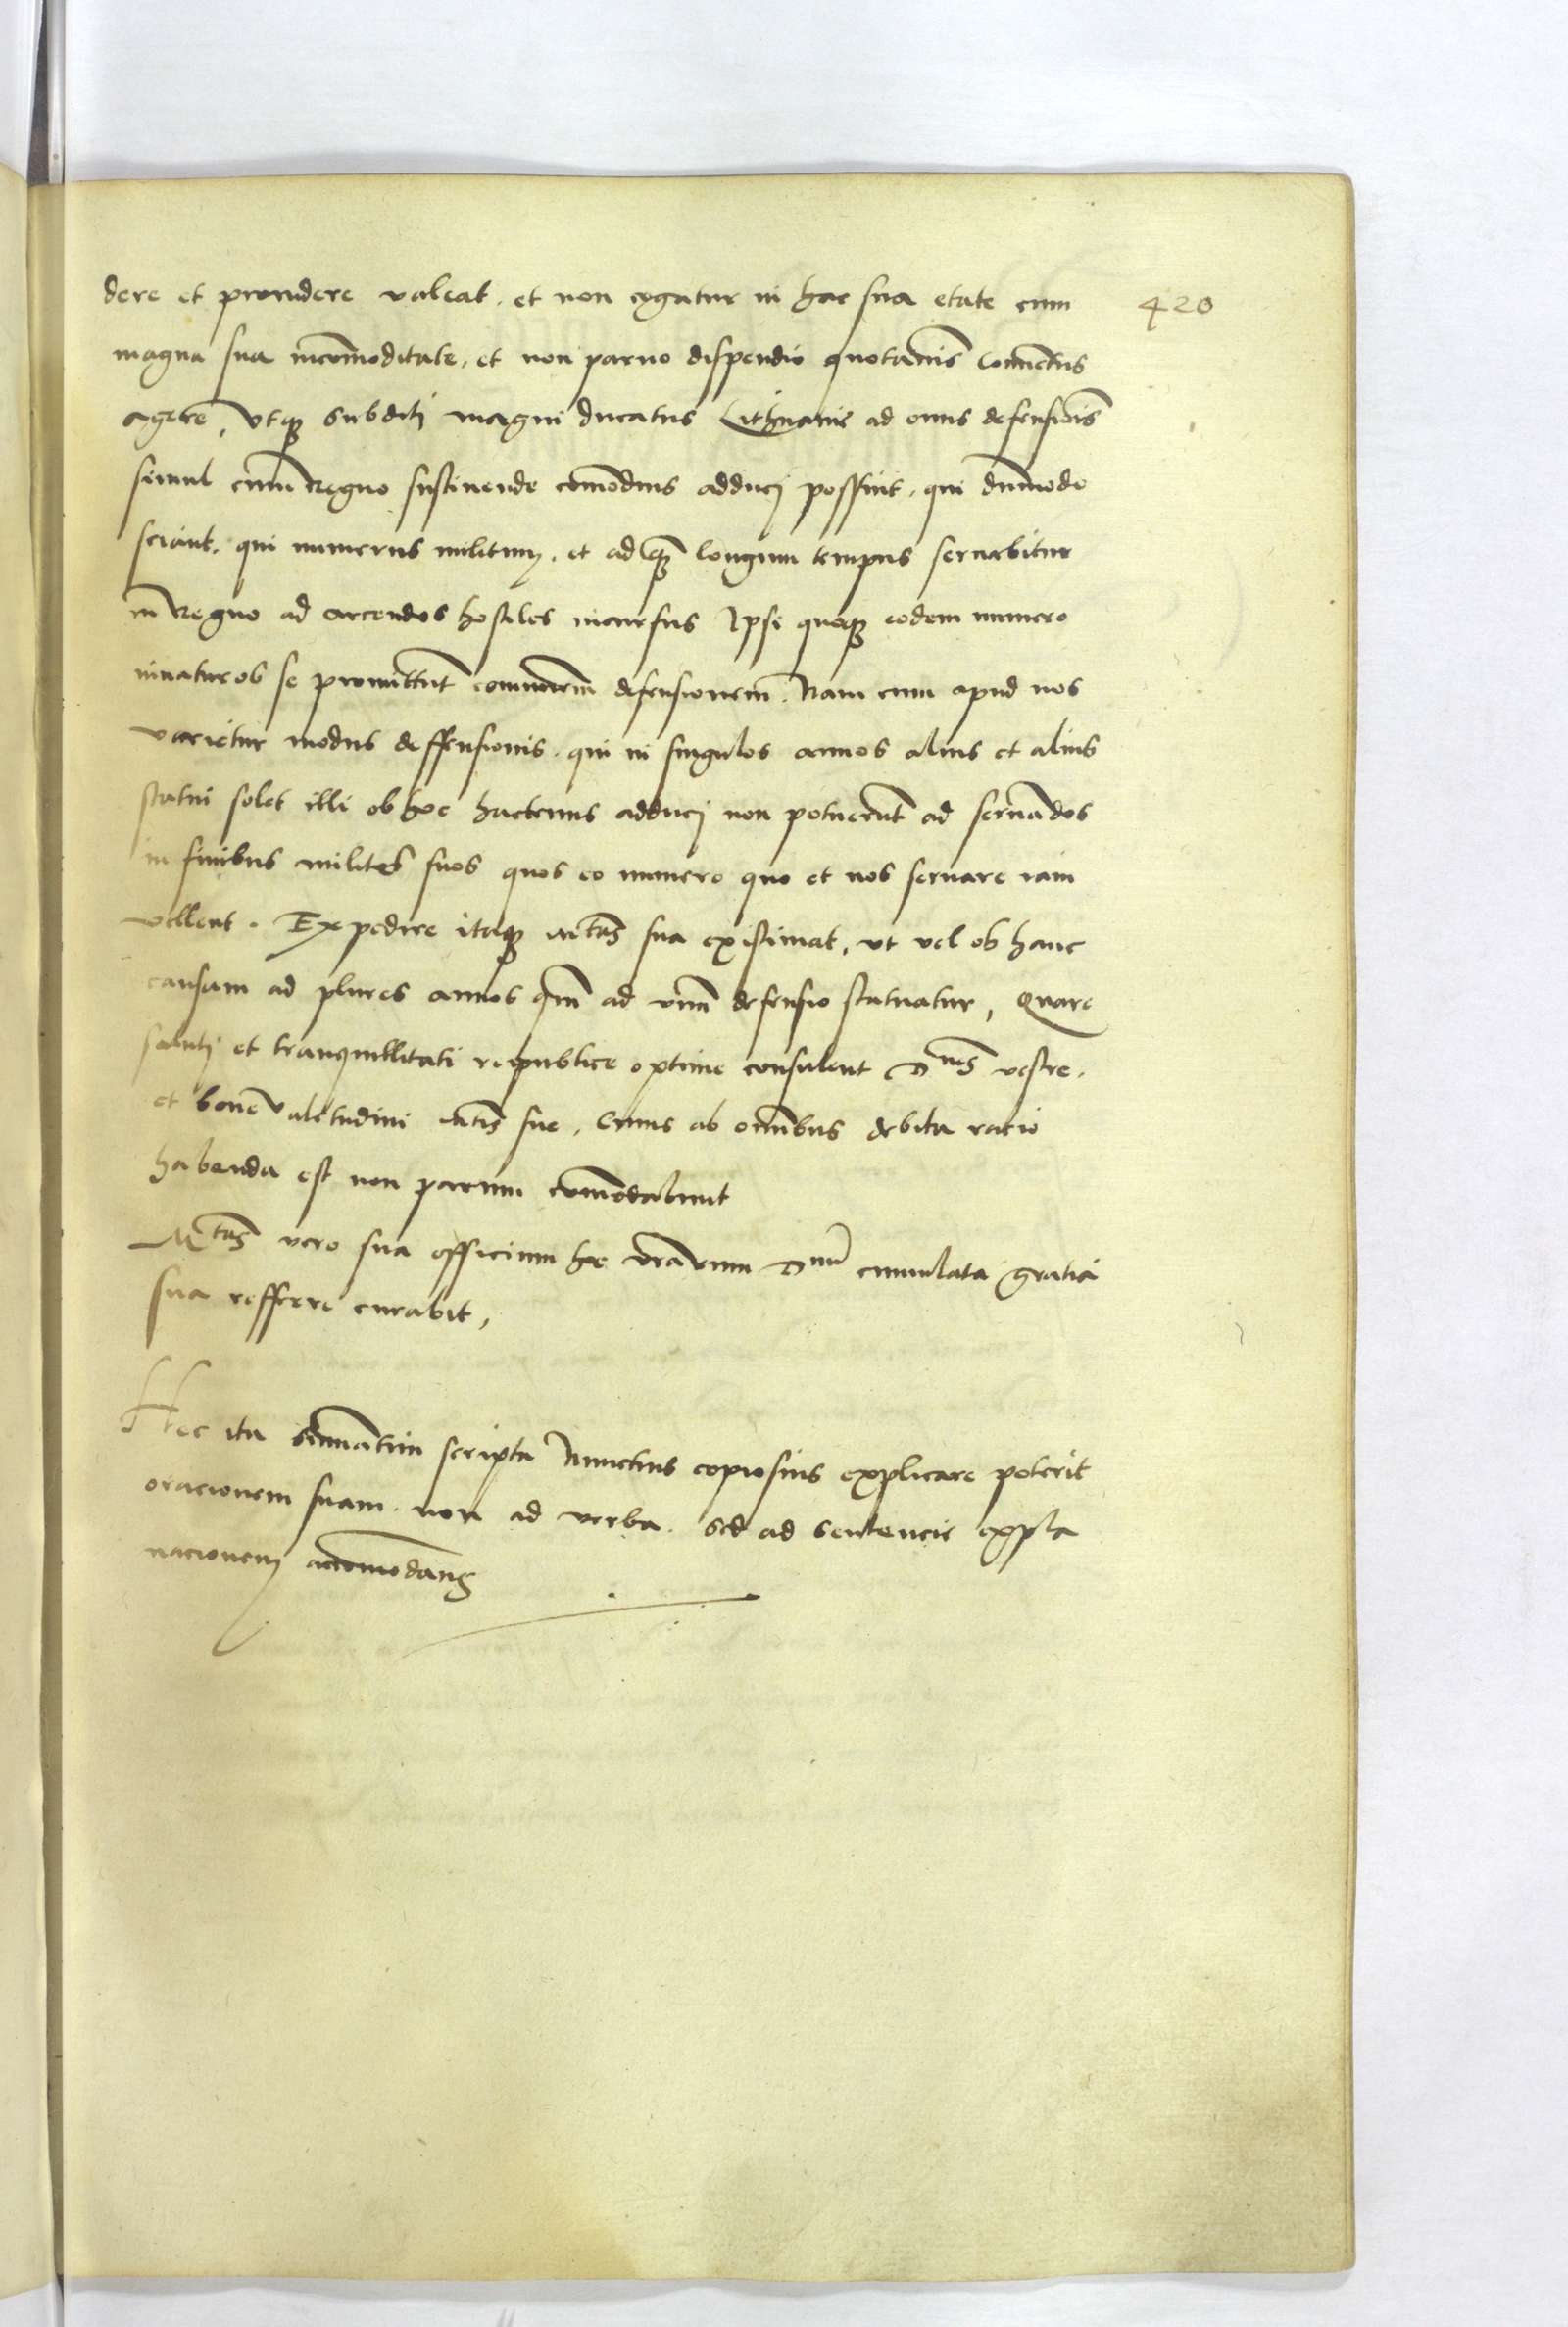 dere et prouidere valeat. et non cogatur in hac sua etate cum
420
magna sua incom̄oditate, et non paruo dispendio quotannis conuentus
agere, Vtq₃ subditi magni ducatus Lithuanie ad onus defensiōis
simul cum Regno sustinende com̄odius adduci possint, qui dummodo
sciant, qui numerus militum, et ad q̄ longum tempus seruabitur
in Regno ad arcendos hostiles incursus Ipsi quoq₃ eodem numero
iuuaturos se promittunt com̄unem defensionem. Nam cum apud nos
varietur modus deffensionis. qui in singulos annos alius et alius
statui solet illi ob hoc hactenus adduci non potuerunt ad seruādos
in finibus milites suos quos eo numero quo et nos seruare iam
vellent. Expedire itaq₃ Mtas sua existimat, vt vel ob hanc
causam ad plures annos qm̄ ad vnū defensio statuatur, Quare
saluti et tranquillitati reipublice optime consulent Dnes vestre.
et bone valetudini Mtis sue, Cuius ab omnibus debita ratio
habenda est non parum com̄odabunt
Mtas vero sua officium hoc vrarum Dnū cumulata gratia
sua refferre curabit,
Hec ita summātim scripta Nunctius copiosius explicare poterit
oracionem suam. non ad verba. sed ad sentencie expla
nacionem accom̄odans